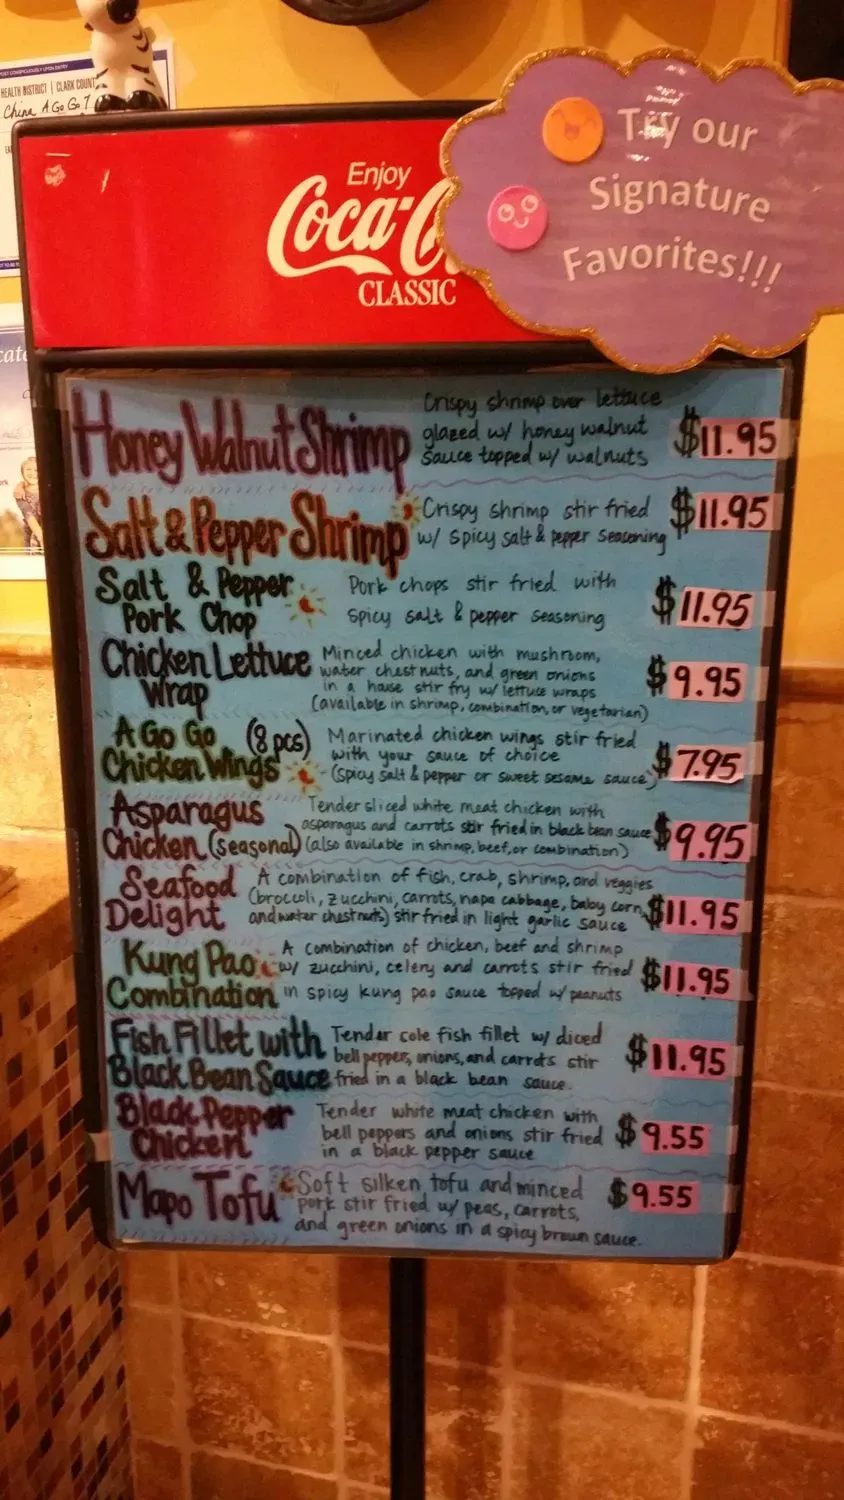 HEALTH DISTRICT | CLARK COUNT
China A Go Go 7
Enjoy
Coca-C
CLASSIC
Try our
Signature
Favorites!!!
Honey Walnut Shrimp
Crispy shrimp over lettuce
glazed w/ honey walnut
sauce topped w/ walnuts
$11.95
Salt & Pepper Shrimp
Crispy shrimp stir fried
w/ spicy salt & pepper seasoning
$11.95
Salt & Pepper
Pork Chop
Pork chops stir fried with
spicy salt & pepper seasoning
$11.95
Chicken Lettuce
Wrap
Minced chicken with mushroom,
water chestnuts, and green onions
in a house stir fry w/ lettuce wraps
(available in shrimp, combination, or vegetarian)
$9.95
A Go Go (8 pcs)
Chicken Wings
Marinated chicken wings stir fried
with your sauce of choice
(spicy salt & pepper or sweet sesame sauce)
$7.95
Asparagus
Chicken (seasonal)
Tender sliced white meat chicken with
asparagus and carrots stir fried in black bean sauce
(also available in shrimp, beef, or combination)
$9.95
Seafood
Delight
A combination of fish, crab, shrimp, and veggies
(broccoli, zucchini, carrots, napa cabbage, baby corn,
and water chestnuts) stir fried in light garlic sauce
$11.95
Kung Pao
Combination
A combination of chicken, beef and shrimp
w/ zucchini, celery and carrots stir fried
in spicy kung pao sauce topped w/ peanuts
$11.95
Fish Fillet with
Black Bean Sauce
Tender cole fish fillet w/ diced
bell pepper, onions, and carrots stir
fried in a black bean sauce.
$11.95
Black Pepper
Chicken
Tender white meat chicken with
bell peppers and onions stir fried
in a black pepper sauce
$9.55
Mapo Tofu
Soft silken tofu and minced
pork stir fried w/ peas, carrots,
and green onions in a spicy brown sauce.
$9.55